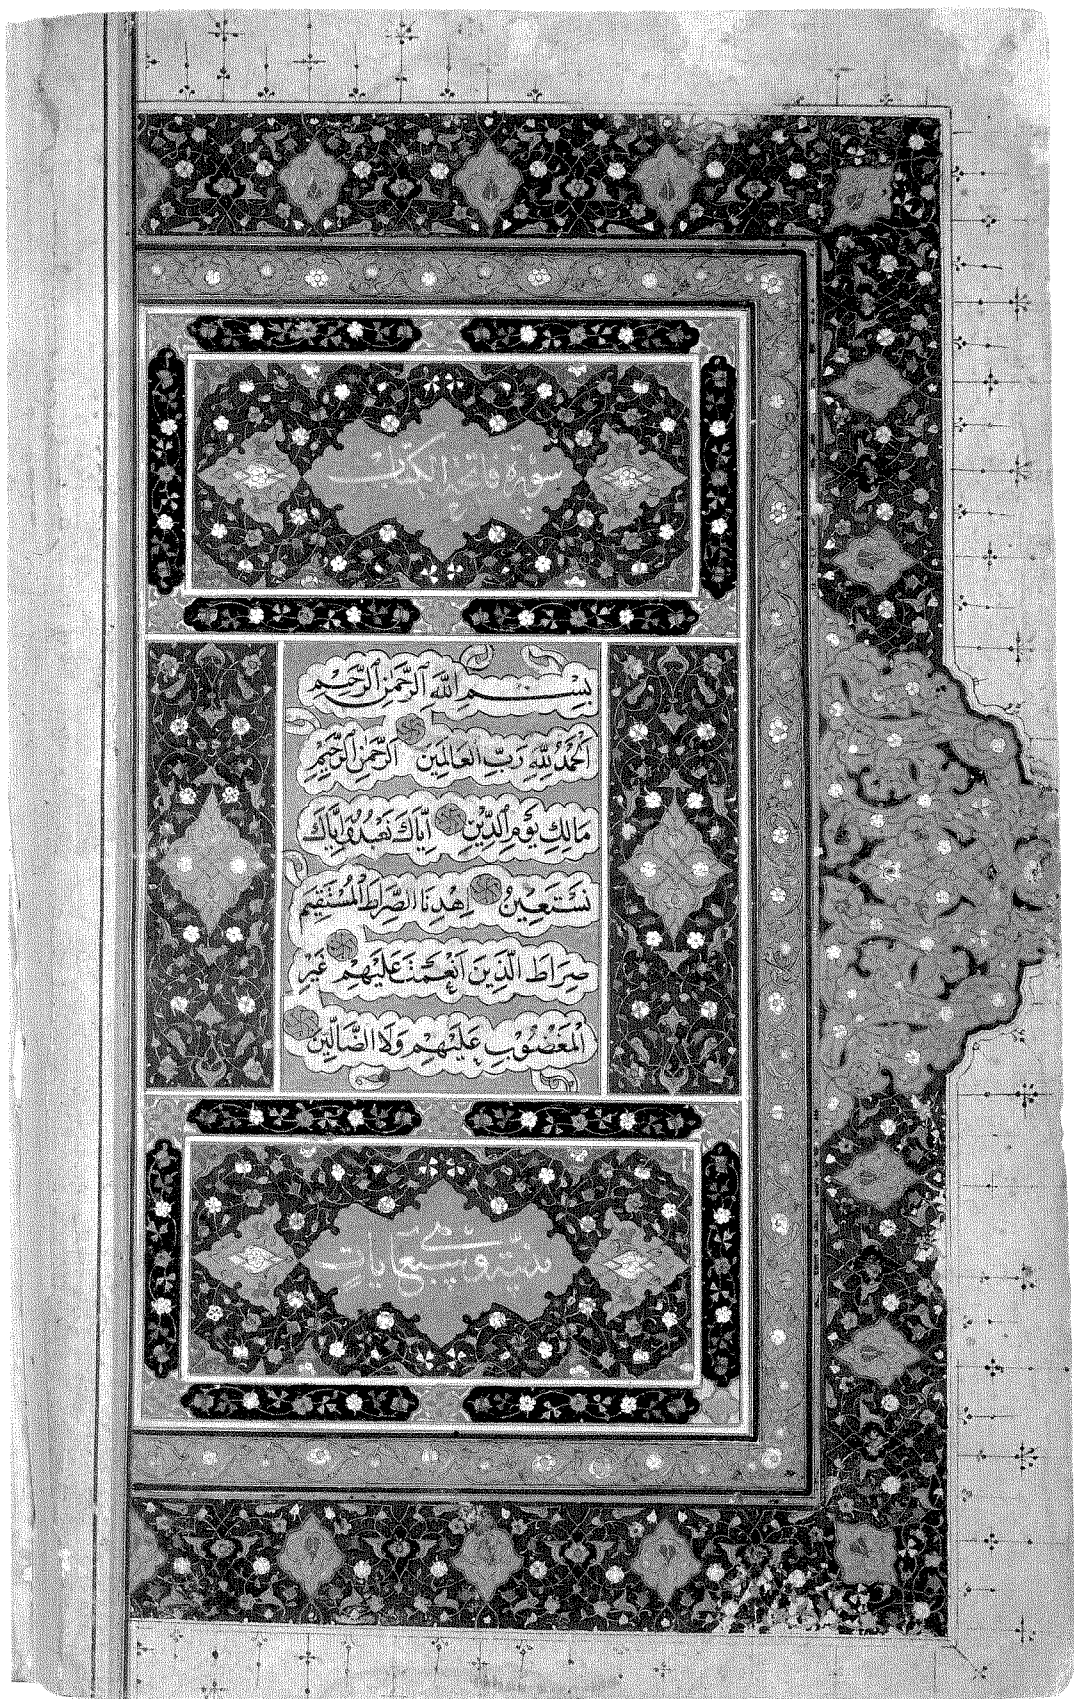 سورة فاتحة الكتاب
بِسْمِ اللَّهِ الرَّحْمَٰنِ الرَّحِيمِ
اَلْحَمْدُ لِلَّهِ رَبِّ الْعَالَمِينَ الرَّحْمَٰنِ الرَّحِيمِ
مَالِكِ يَوْمِ الدِّينِ اِيَّاكَ نَعْبُدُ وَاِيَّاكَ
نَسْتَعِينُ اِهْدِنَا الصِّرَاطَ الْمُسْتَقِيمَ
صِرَاطَ الَّذِينَ اَنْعَمْتَ عَلَيْهِمْ غَيْرِ
الْمَغْضُوبِ عَلَيْهِمْ وَلَا الضَّالِّينَ
وهي سبع آيات